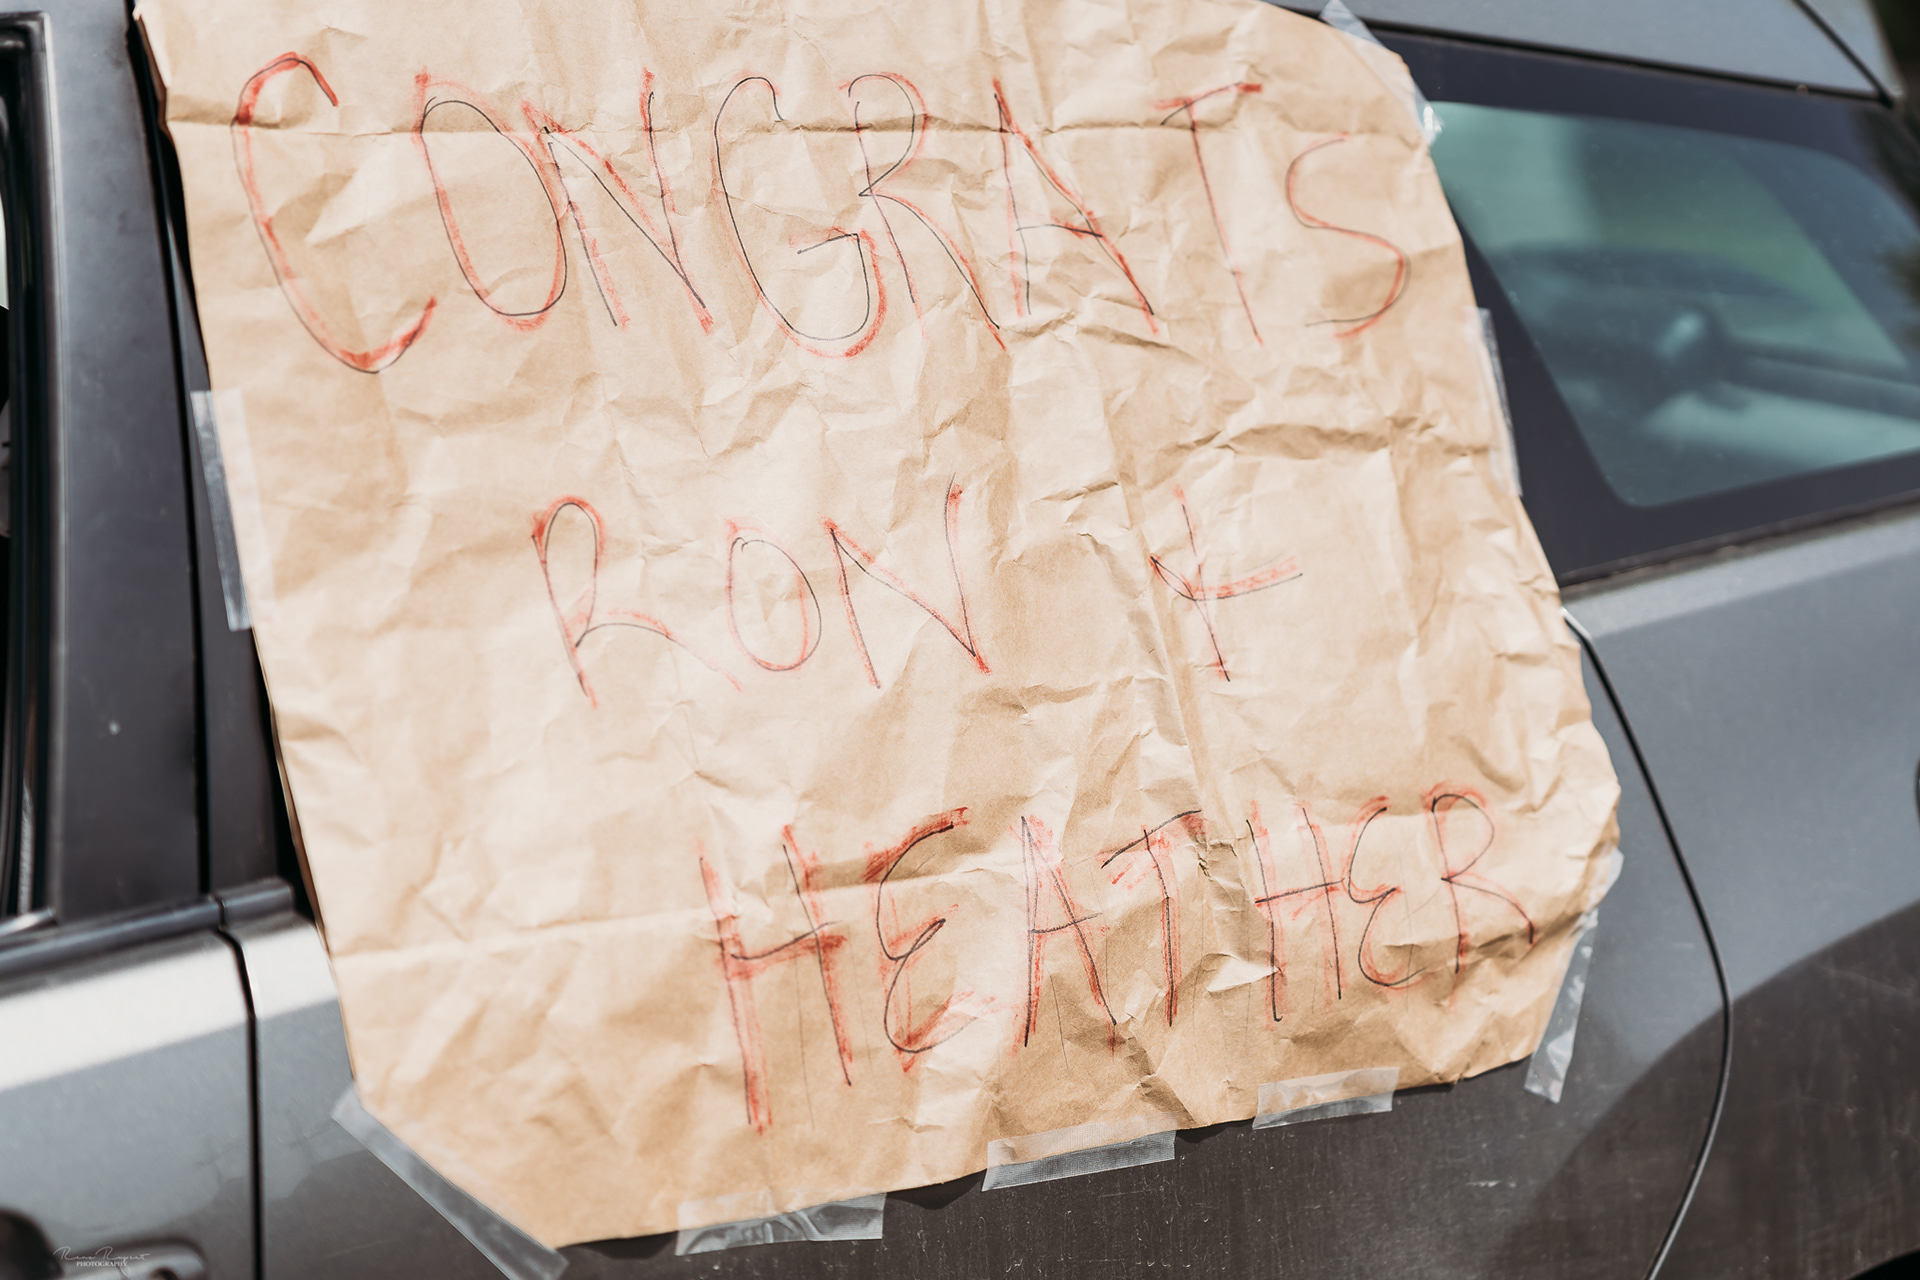 CONGRATS
RON +
HEATHER
PHOTOGRAPHY